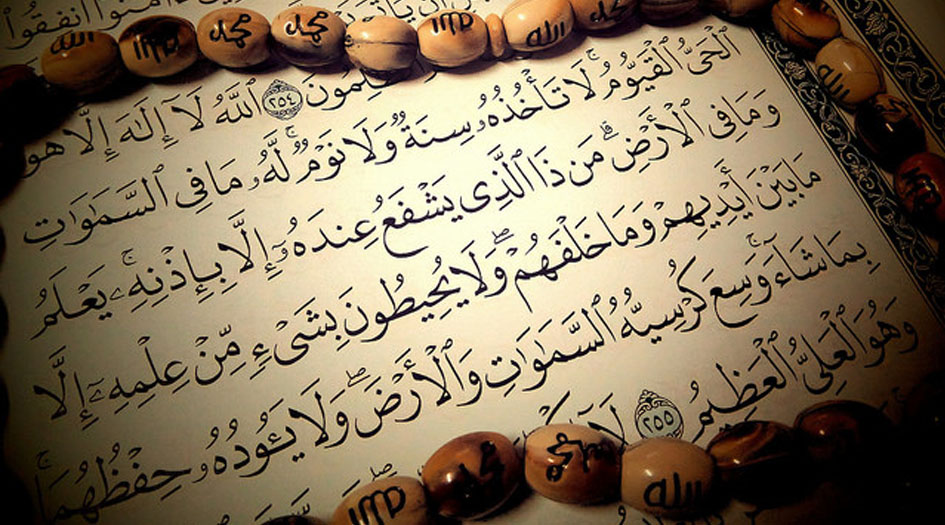 أَنفِقُوا۟
ٱللَّهُ لَآ إِلَٰهَ إِلَّا هُوَ ٢٥٤
ٱلْحَىُّ ٱلْقَيُّومُ ۚ لَا تَأْخُذُهُۥ سِنَةٌ وَلَا نَوْمٌ ۚ لَّهُۥ مَا فِى ٱلسَّمَٰوَٰتِ
وَمَا فِى ٱلْأَرْضِ ۗ مَن ذَا ٱلَّذِى يَشْفَعُ عِندَهُۥٓ إِلَّا بِإِذْنِهِۦ ۚ يَعْلَمُ
مَا بَيْنَ أَيْدِيهِمْ وَمَا خَلْفَهُمْ ۖ وَلَا يُحِيطُونَ بِشَىْءٍ مِّنْ عِلْمِهِۦٓ إِلَّا
بِمَا شَآءَ ۚ وَسِعَ كُرْسِيُّهُ ٱلسَّمَٰوَٰتِ وَٱلْأَرْضَ ۖ وَلَا يَـُٔودُهُۥ حِفْظُهُمَا ۚ
وَهُوَ ٱلْعَلِىُّ ٱلْعَظِيمُ ٢٥٥ لَآ
الله
محمد
محمد
الله
الله
محمد
الله